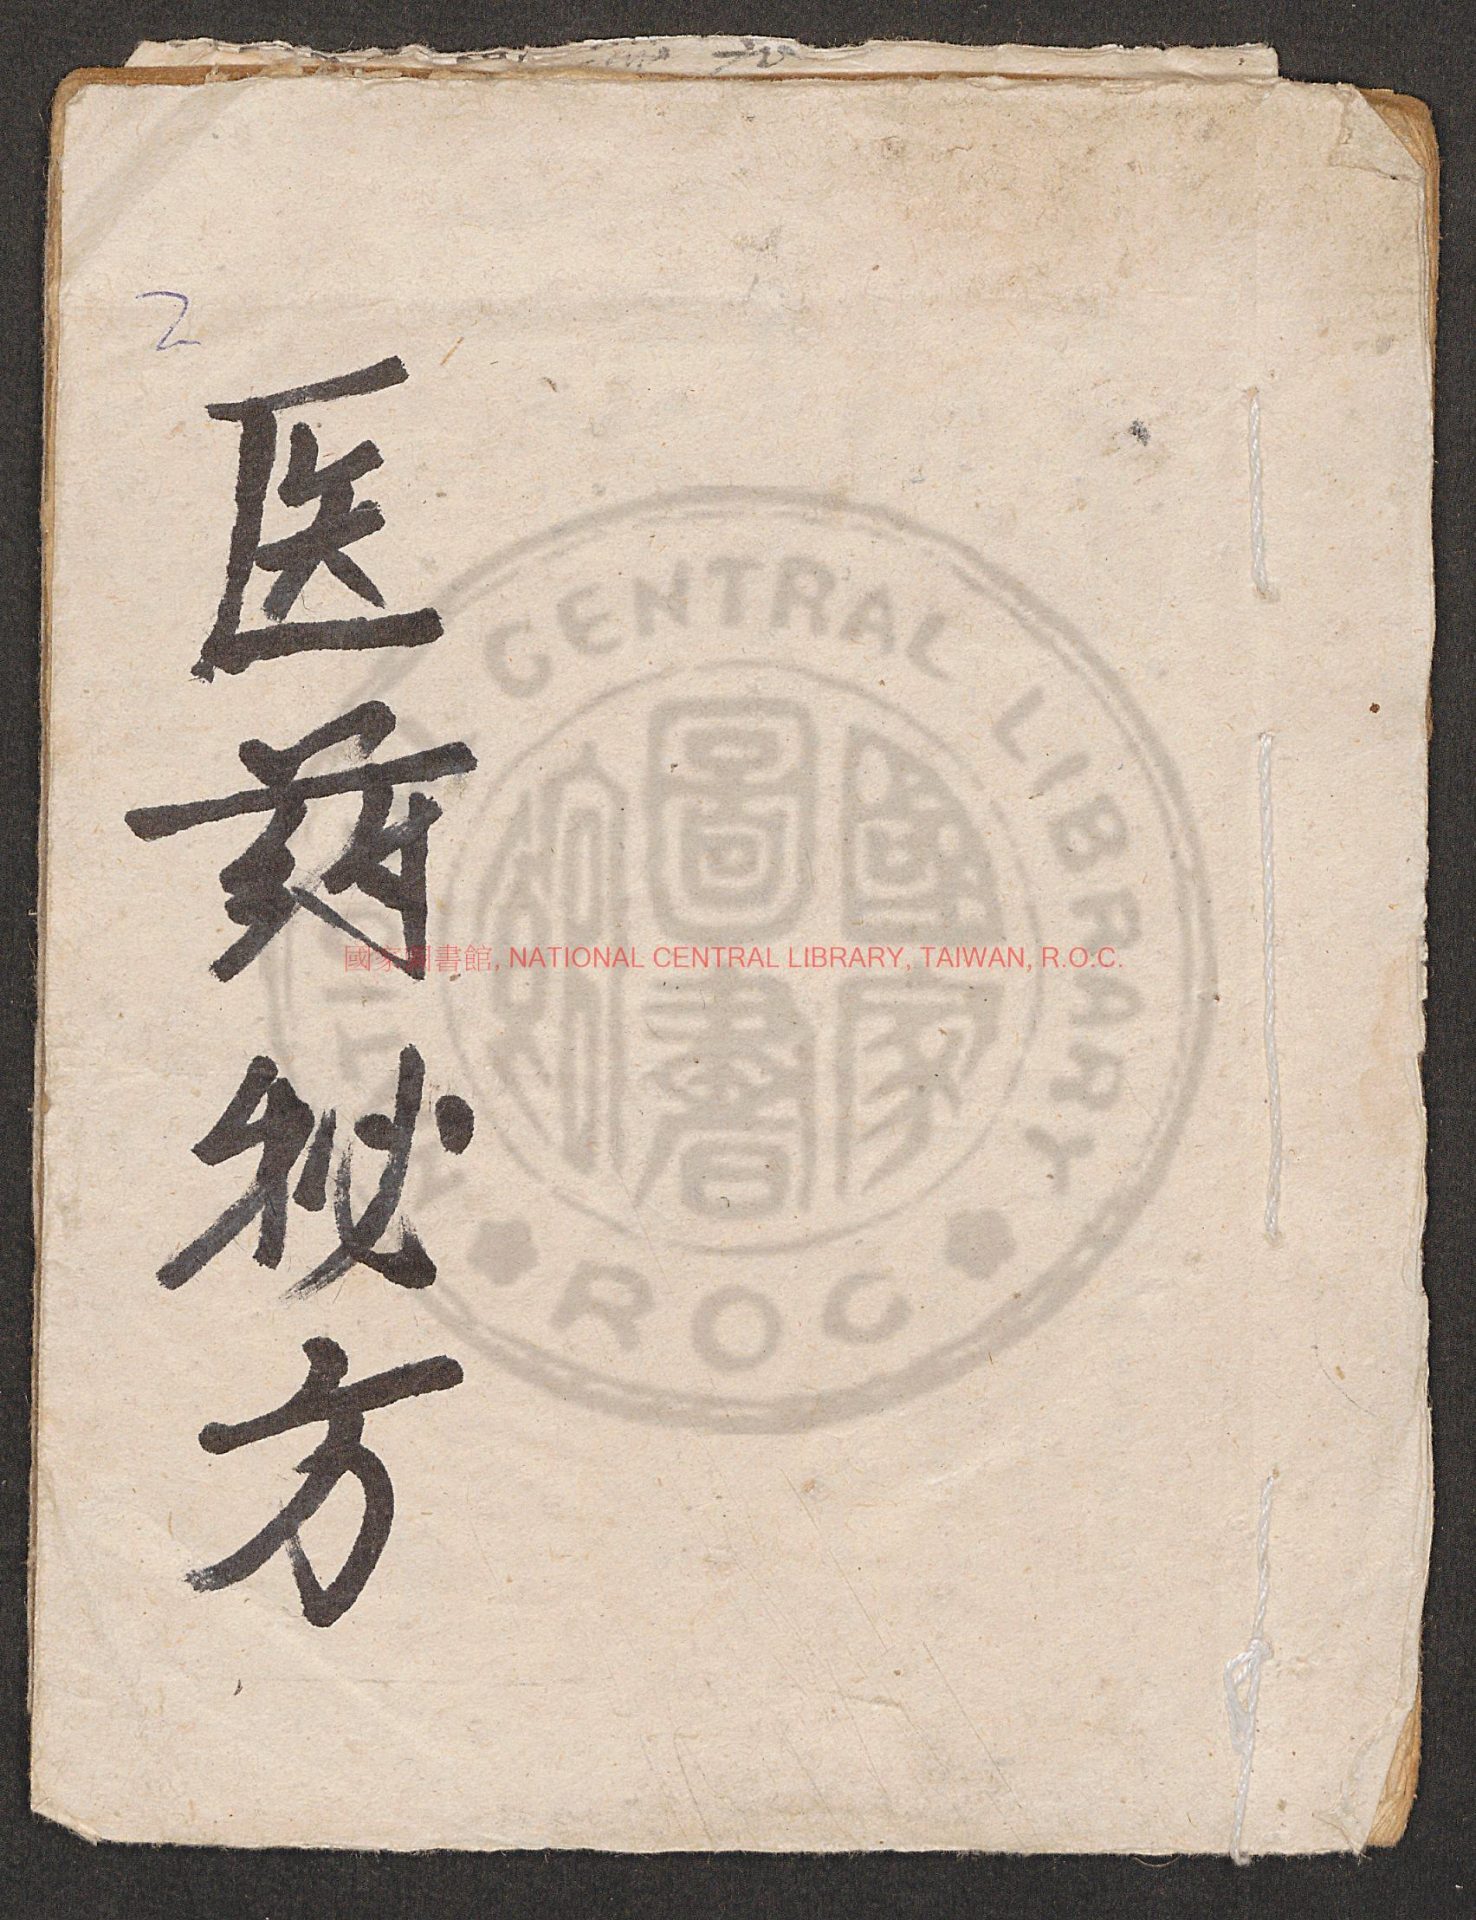 2
医药秘方
國家圖書館, NATIONAL CENTRAL LIBRARY, TAIWAN, R.O.C.
CENTRAL LIBRARY
ROC
國家圖書館